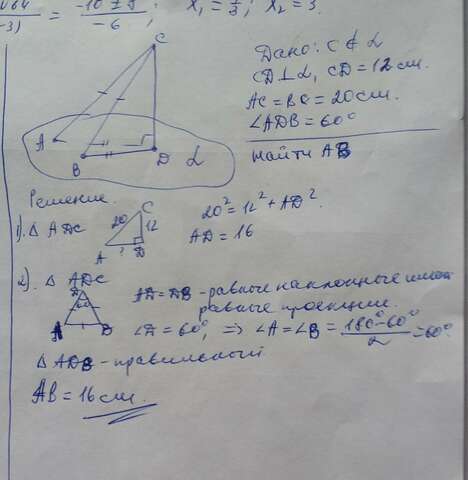 -3) = -10 ± 8 / -6 ; x₁ = 1/3 ; x₂ = 3.
C
A
B
D
α
Дано: C ∉ α
CD ⊥ α, CD = 12 см.
AC = BC = 20 см.
∠ADB = 60°
Найти AB
Решение.
1). Δ ADC
C
20
12
A
?
D
20² = 12² + AD².
AD = 16
2). Δ ADC
D
60
A
B
AD = DB - равные наклонные имеют
равные проекции.
∠D = 60°, ⇒ ∠A = ∠B = 180° - 60° / 2 = 60°.
Δ ADB - правильный
AB = 16 см.